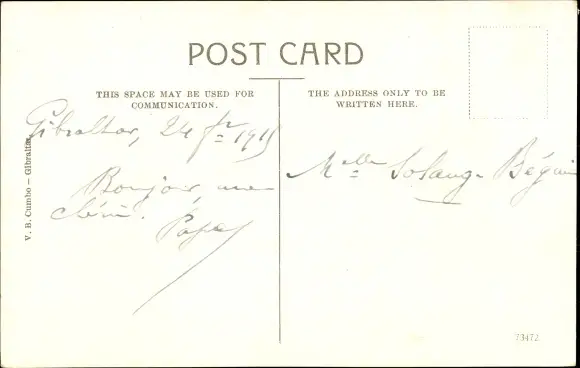 POST CARD
THIS SPACE MAY BE USED FOR
COMMUNICATION.
THE ADDRESS ONLY TO BE
WRITTEN HERE.
Gibraltar, 24 fr 1915
Bonjour, ma
chérie.
Papa
Melle Solange Béguin
V. B. Cumbo – Gibraltar
73472